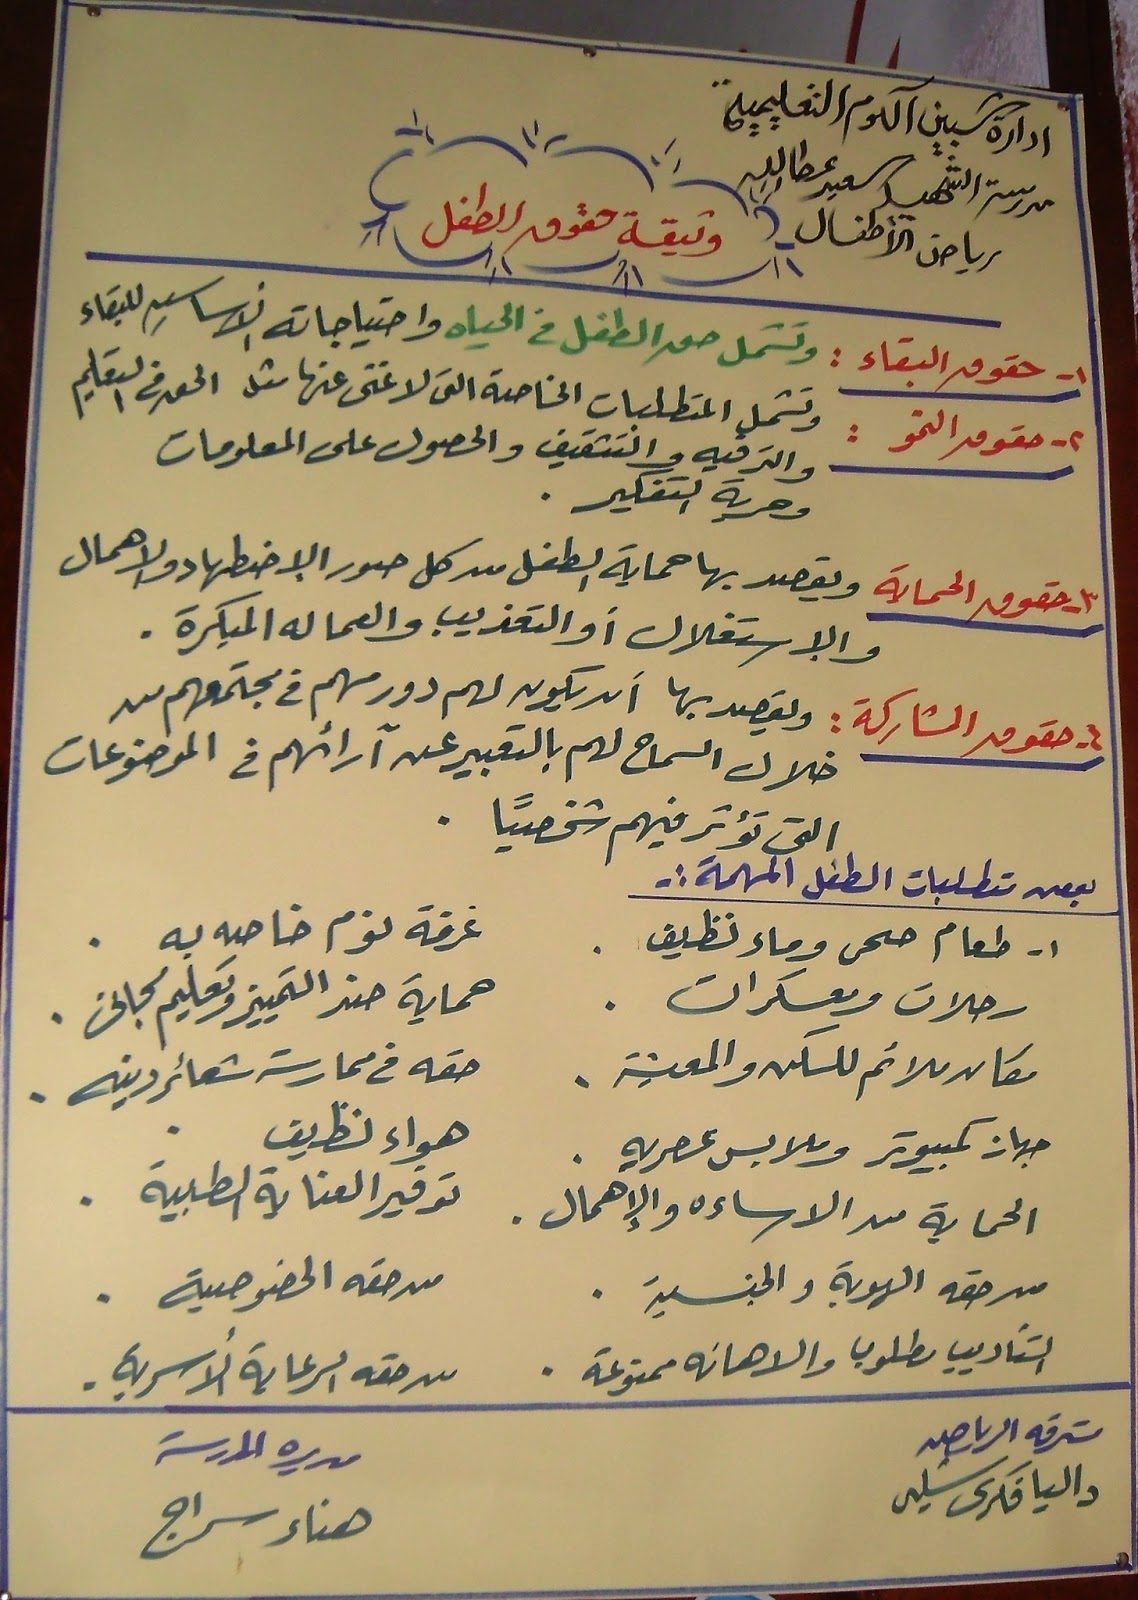 ادارة شبين الكوم التعليمية
مدرسة الشهيد سعيد عطا الله
رياض الأطفال
وثيقة حقوق الطفل
١- حقوق البقاء : وتشمل حق الطفل فى الحياه واحتياجاته الأساسيه للبقاء
٢- حقوق النمو : وتشمل المتطلبات الخاصة التى لا غنى عنها مثل الحق فى التعليم
والترفيه والتثقيف والحصول على المعلومات
وحرية التفكير .
٣- حقوق الحماية ويقصد بها حماية الطفل من كل صور الإضطهاد والاهمال
والإستغلال أو التعذيب والعماله المبكرة .
٤- حقوق المشاركة : ويقصد بها أن يكون لهم دور مهم فى مجتمعهم من
خلال السماح لهم بالتعبير عن آرائهم فى الموضوعات
التى تؤثر فيهم شخصيًا .
بعض متطلبات الطفل المهمة :-
١- طعام صحى وماء نظيف .
غرفة نوم خاصه به .
رحلات ومعسكرات .
حماية ضد التمييز وتعليم مجانى .
مكان ملائم للسكن والمعيشة .
حقه فى ممارسة شعائر دينه .
جهاز كمبيوتر وملابس عصريه .
هواء نظيف .
الحماية من الاساءه والإهمال .
توفير العناية الطبية .
من حقه الهوية والجنسية .
من حقه الخصوصية .
التأديب مطلوب والاهانه ممنوعة .
من حقه الرعاية الأسرية .
مشرفه الرياض
داليا فكرى
مديره المدرسة
هناء سراج